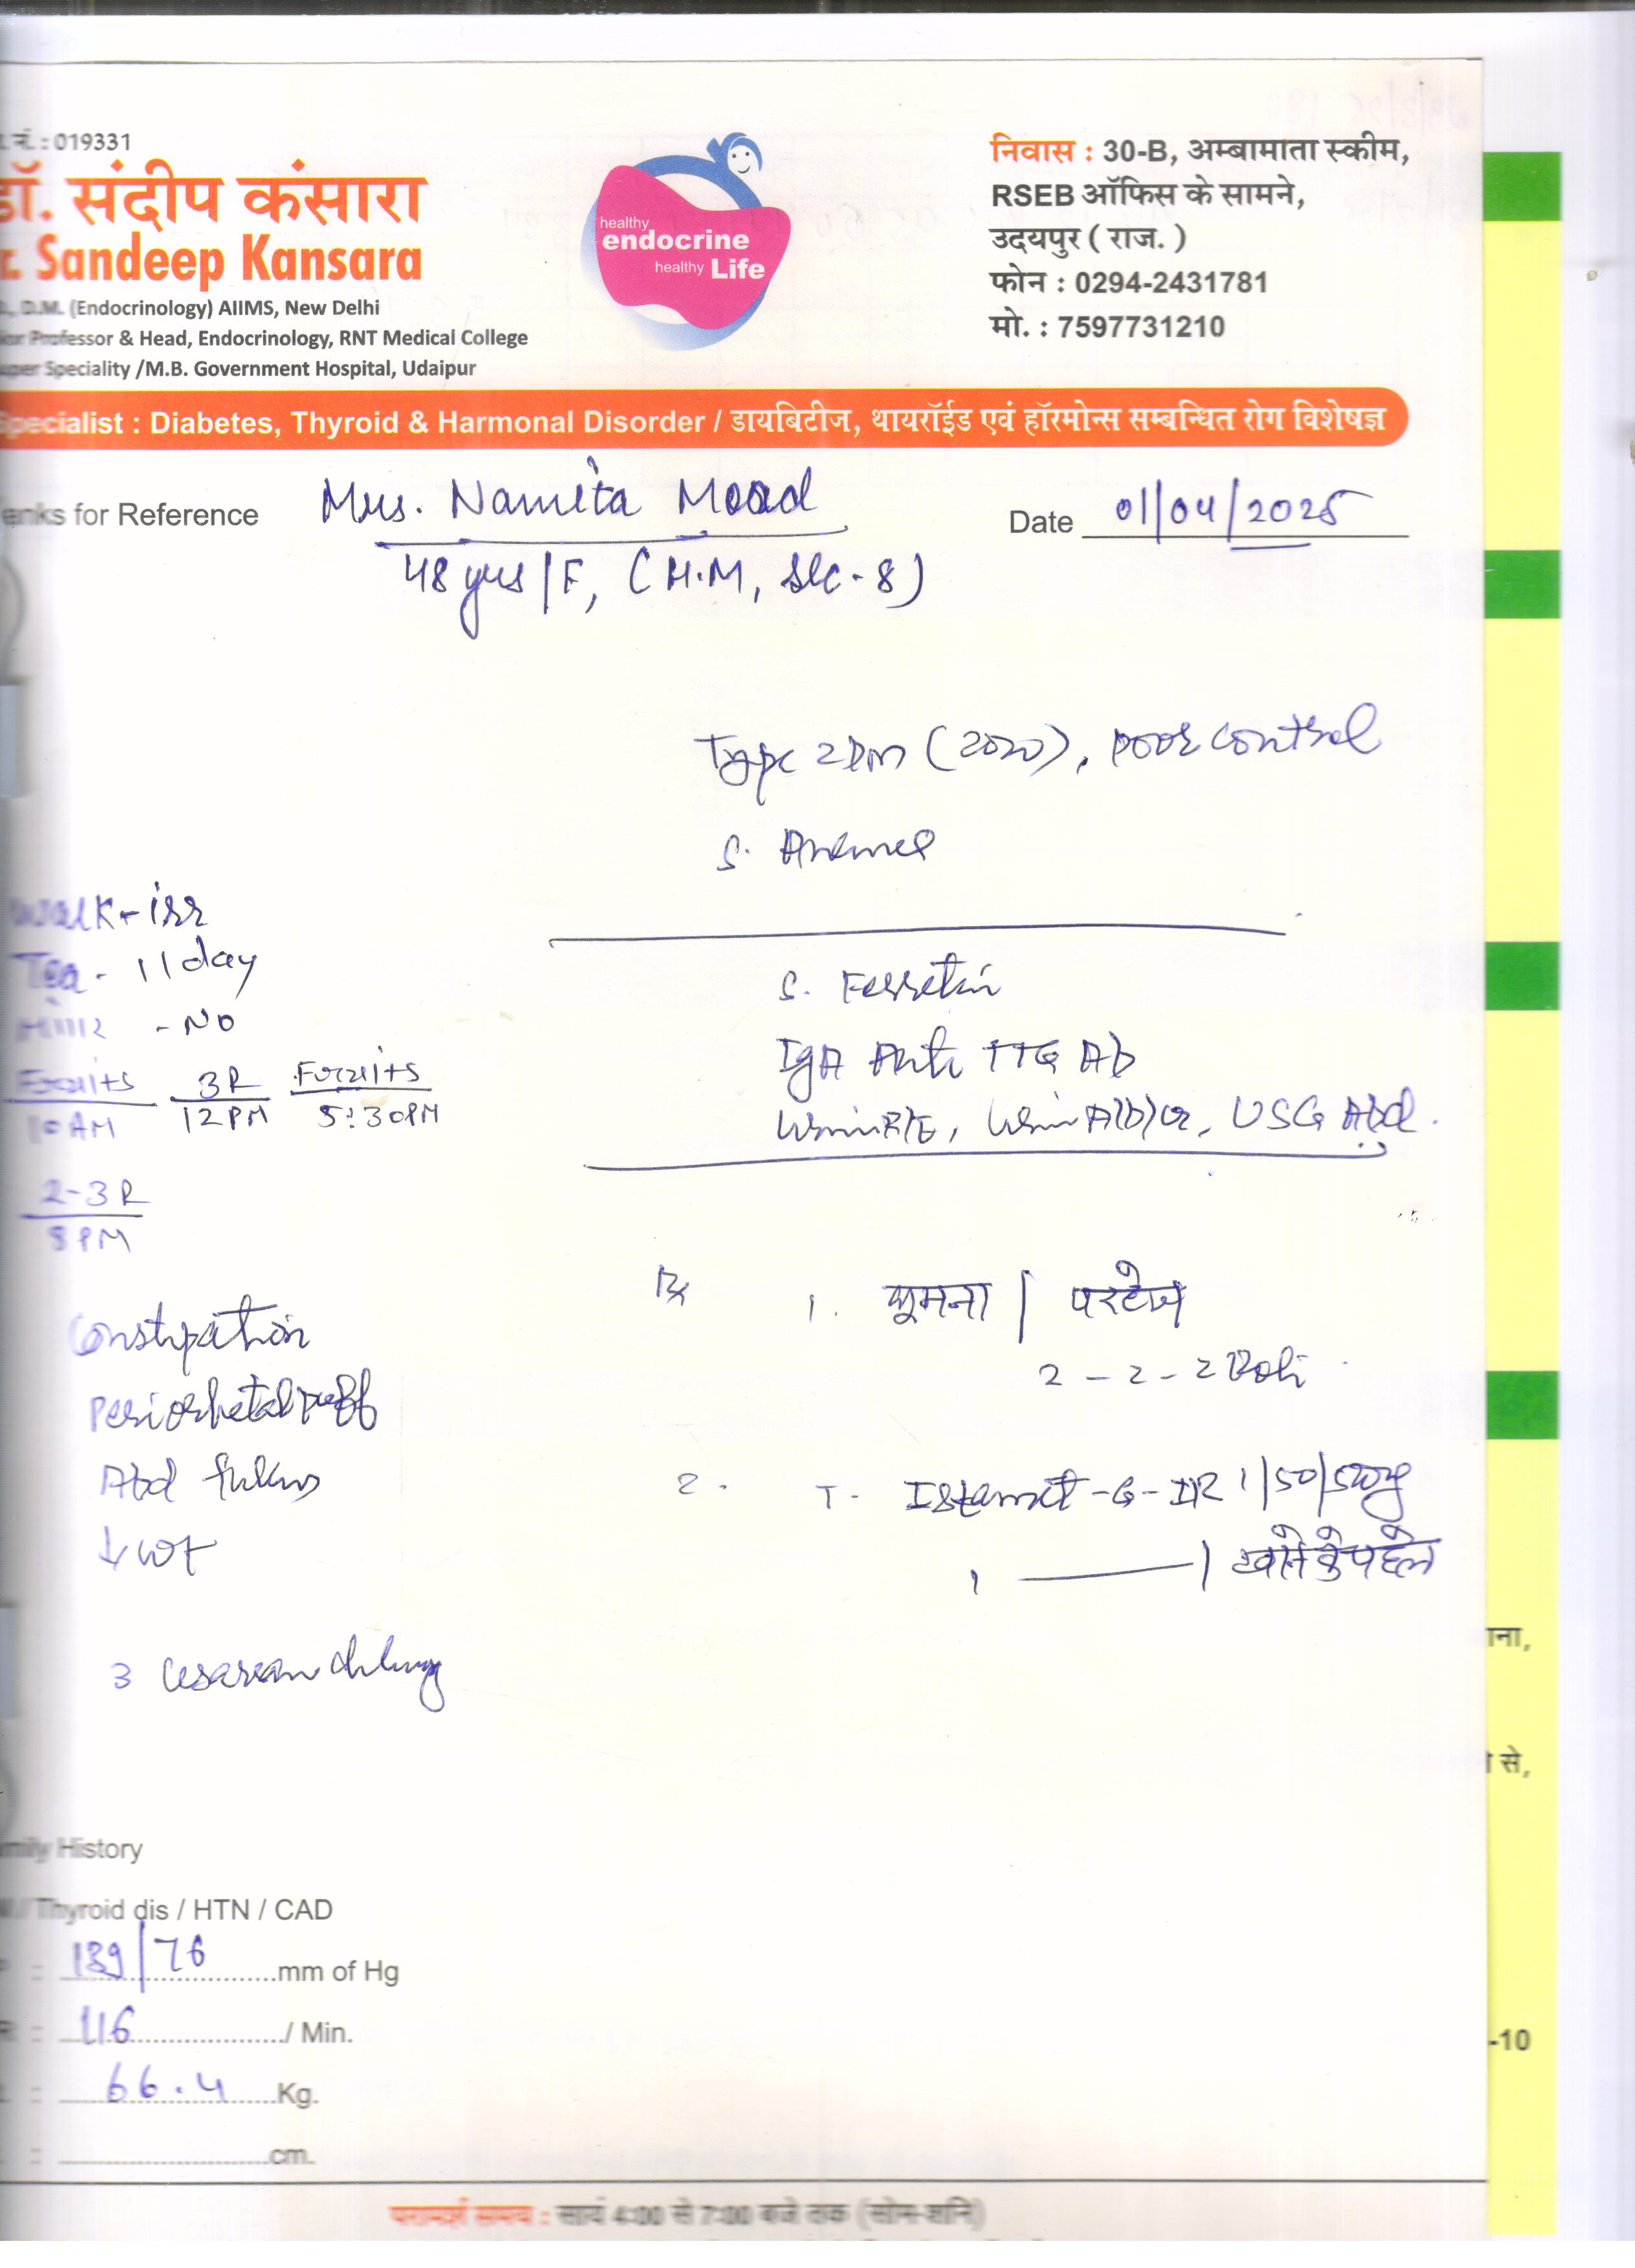 .नं. : 019331
डॉ. संदीप कंसारा
r. Sandeep Kansara
D.M. (Endocrinology) AIIMS, New Delhi
Professor & Head, Endocrinology, RNT Medical College
uper Speciality /M.B. Government Hospital, Udaipur
healthy
endocrine
healthy Life
निवास : 30-B, अम्बामाता स्कीम,
RSEB ऑफिस के सामने,
उदयपुर ( राज. )
फोन : 0294-2431781
मो. : 7597731210
pecialist : Diabetes, Thyroid & Harmonal Disorder / डायबिटीज, थायरॉईड एवं हॉरमोन्स सम्बन्धित रोग विशेषज्ञ
anks for Reference Mrs. Namita Date 01/04/2025
48 yrs/F, (H.M, Sec-8)
Type 2 DM (2020), poor control
S.
walk - irr
Tea - 1/day
- NO
Fruits 3R Fruits
10 AM 12 PM 5:30PM
2-3 R
8 PM
S. Ferretin
IgA Anti TTG Ab
USG Abd.
Constipation
Periorbetal puff
Abd
↓ wt
3 cesarean
Rx
1. घूमना / परहेज
2 - 2 - 2 Roti
2. T. Istamet-G-IR 1/50/500
1 ——— 1 खाने के पहले
mily History
/ Thyroid dis / HTN / CAD
: 139/76 mm of Hg
: 116 / Min.
: 66.4 Kg.
: cm.
परामर्श समय : सायं 4:00 से 7:00 बजे तक (सोम-शनि)
ाना,
से,
-10